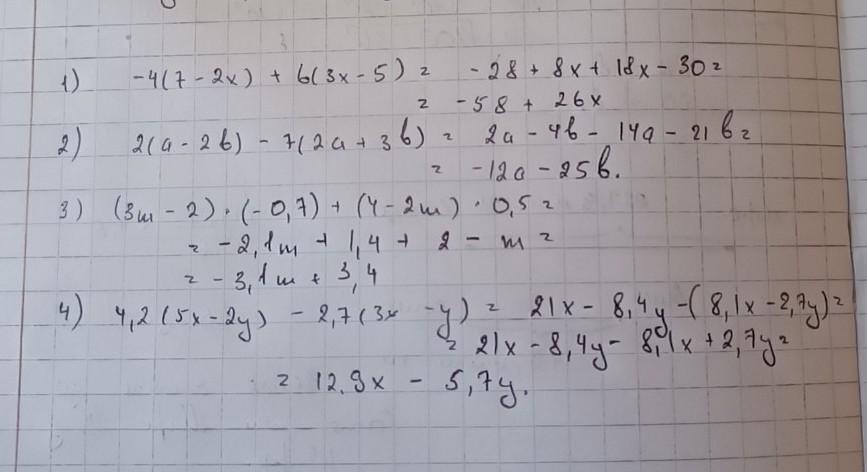 1) -4(7 - 2x) + 6(3x - 5) = -28 + 8x + 18x - 30 =
= -58 + 26x
2) 2(a - 2b) - 7(2a + 3b) = 2a - 4b - 14a - 21b =
= -12a - 25b.
3) (3m - 2) · (-0,7) + (4 - 2m) · 0,5 =
= -2,1m + 1,4 + 2 - m =
= -3,1m + 3,4
4) 4,2(5x - 2y) - 2,7(3x - y) = 21x - 8,4y - (8,1x - 2,7y) =
= 21x - 8,4y - 8,1x + 2,7y =
= 12.9x - 5,7y.